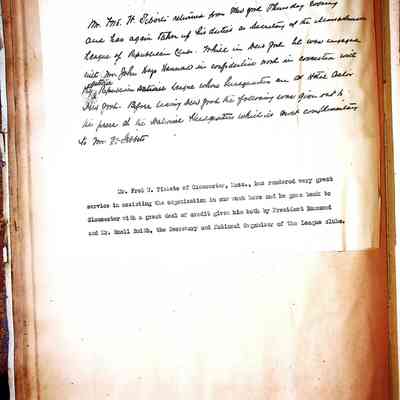 Mr. Fred. H. Tibbets returned from New York Thursday Evening
and has again taken up his duties as Secretary of the Massachusetts
League of Republican Clubs. While in New York he was engaged
with Mr. John Hays Hammond in confidential work in connection with
Republican National League whose Headquarters are at Hotel Astor
New York. Before leaving New York the following was given out to
the press at the National Headquarters which is most complimentary
to Mr Tibbets
Mr. Fred H. Tibbets of Gloucester, Mass., has rendered very great
service in assisting the organization in our work here and he goes back to
Gloucester with a great deal of credit given him both by President Hammond
and Mr. Smith, the Secretary and National Organizer of the League Clubs.